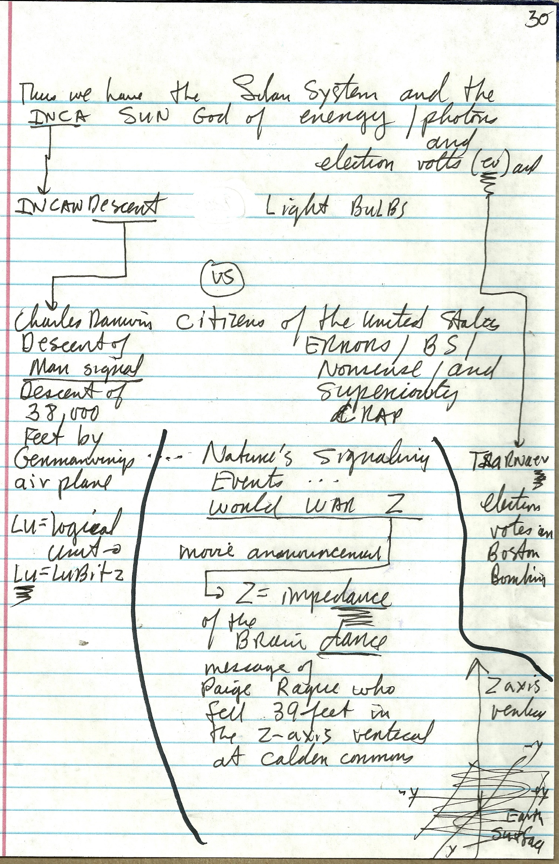 30
Thus we have the Solar System and the
INCA SUN God of energy / photons
and
election volts (ev) and
INCAN Descent Light BULBS
VS
Charles Darwin
Descent of
Man signal
Descent of
38,000
Feet by
Germanwings ....
air plane
Lu=logical
unit→
Lu=LuBitz
Citizens of the United States
ERRORS / BS /
Nonsense / and
Superiority
CRAP
Nature's Signaling
Events ...
World WAR Z
movie announcement
Z= impedance
of the
BRain dance
message of
Paige Raque who
fell 39-feet in
the Z-axis vertical
at Calden commons
TSARNaev
election
votes in
Boston
Bombing
Z axis
vertical
-y
-y
+y
Earth
Surface
x